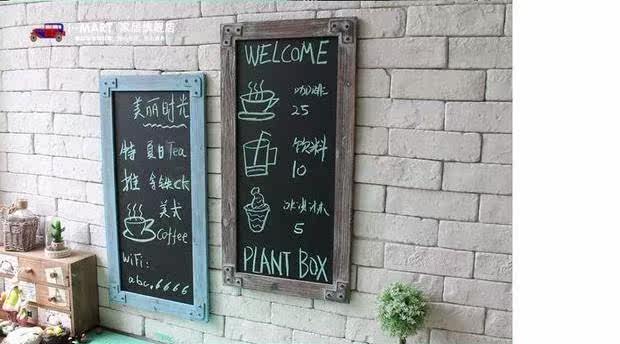 i-MART 家居旗舰店
美丽时光
特 夏日Tea
推 拿铁ck
美式
Coffee
WiFi:
abc.6666
WELCOME
咖啡
25
饮料
10
冰淇淋
5
PLANT BOX